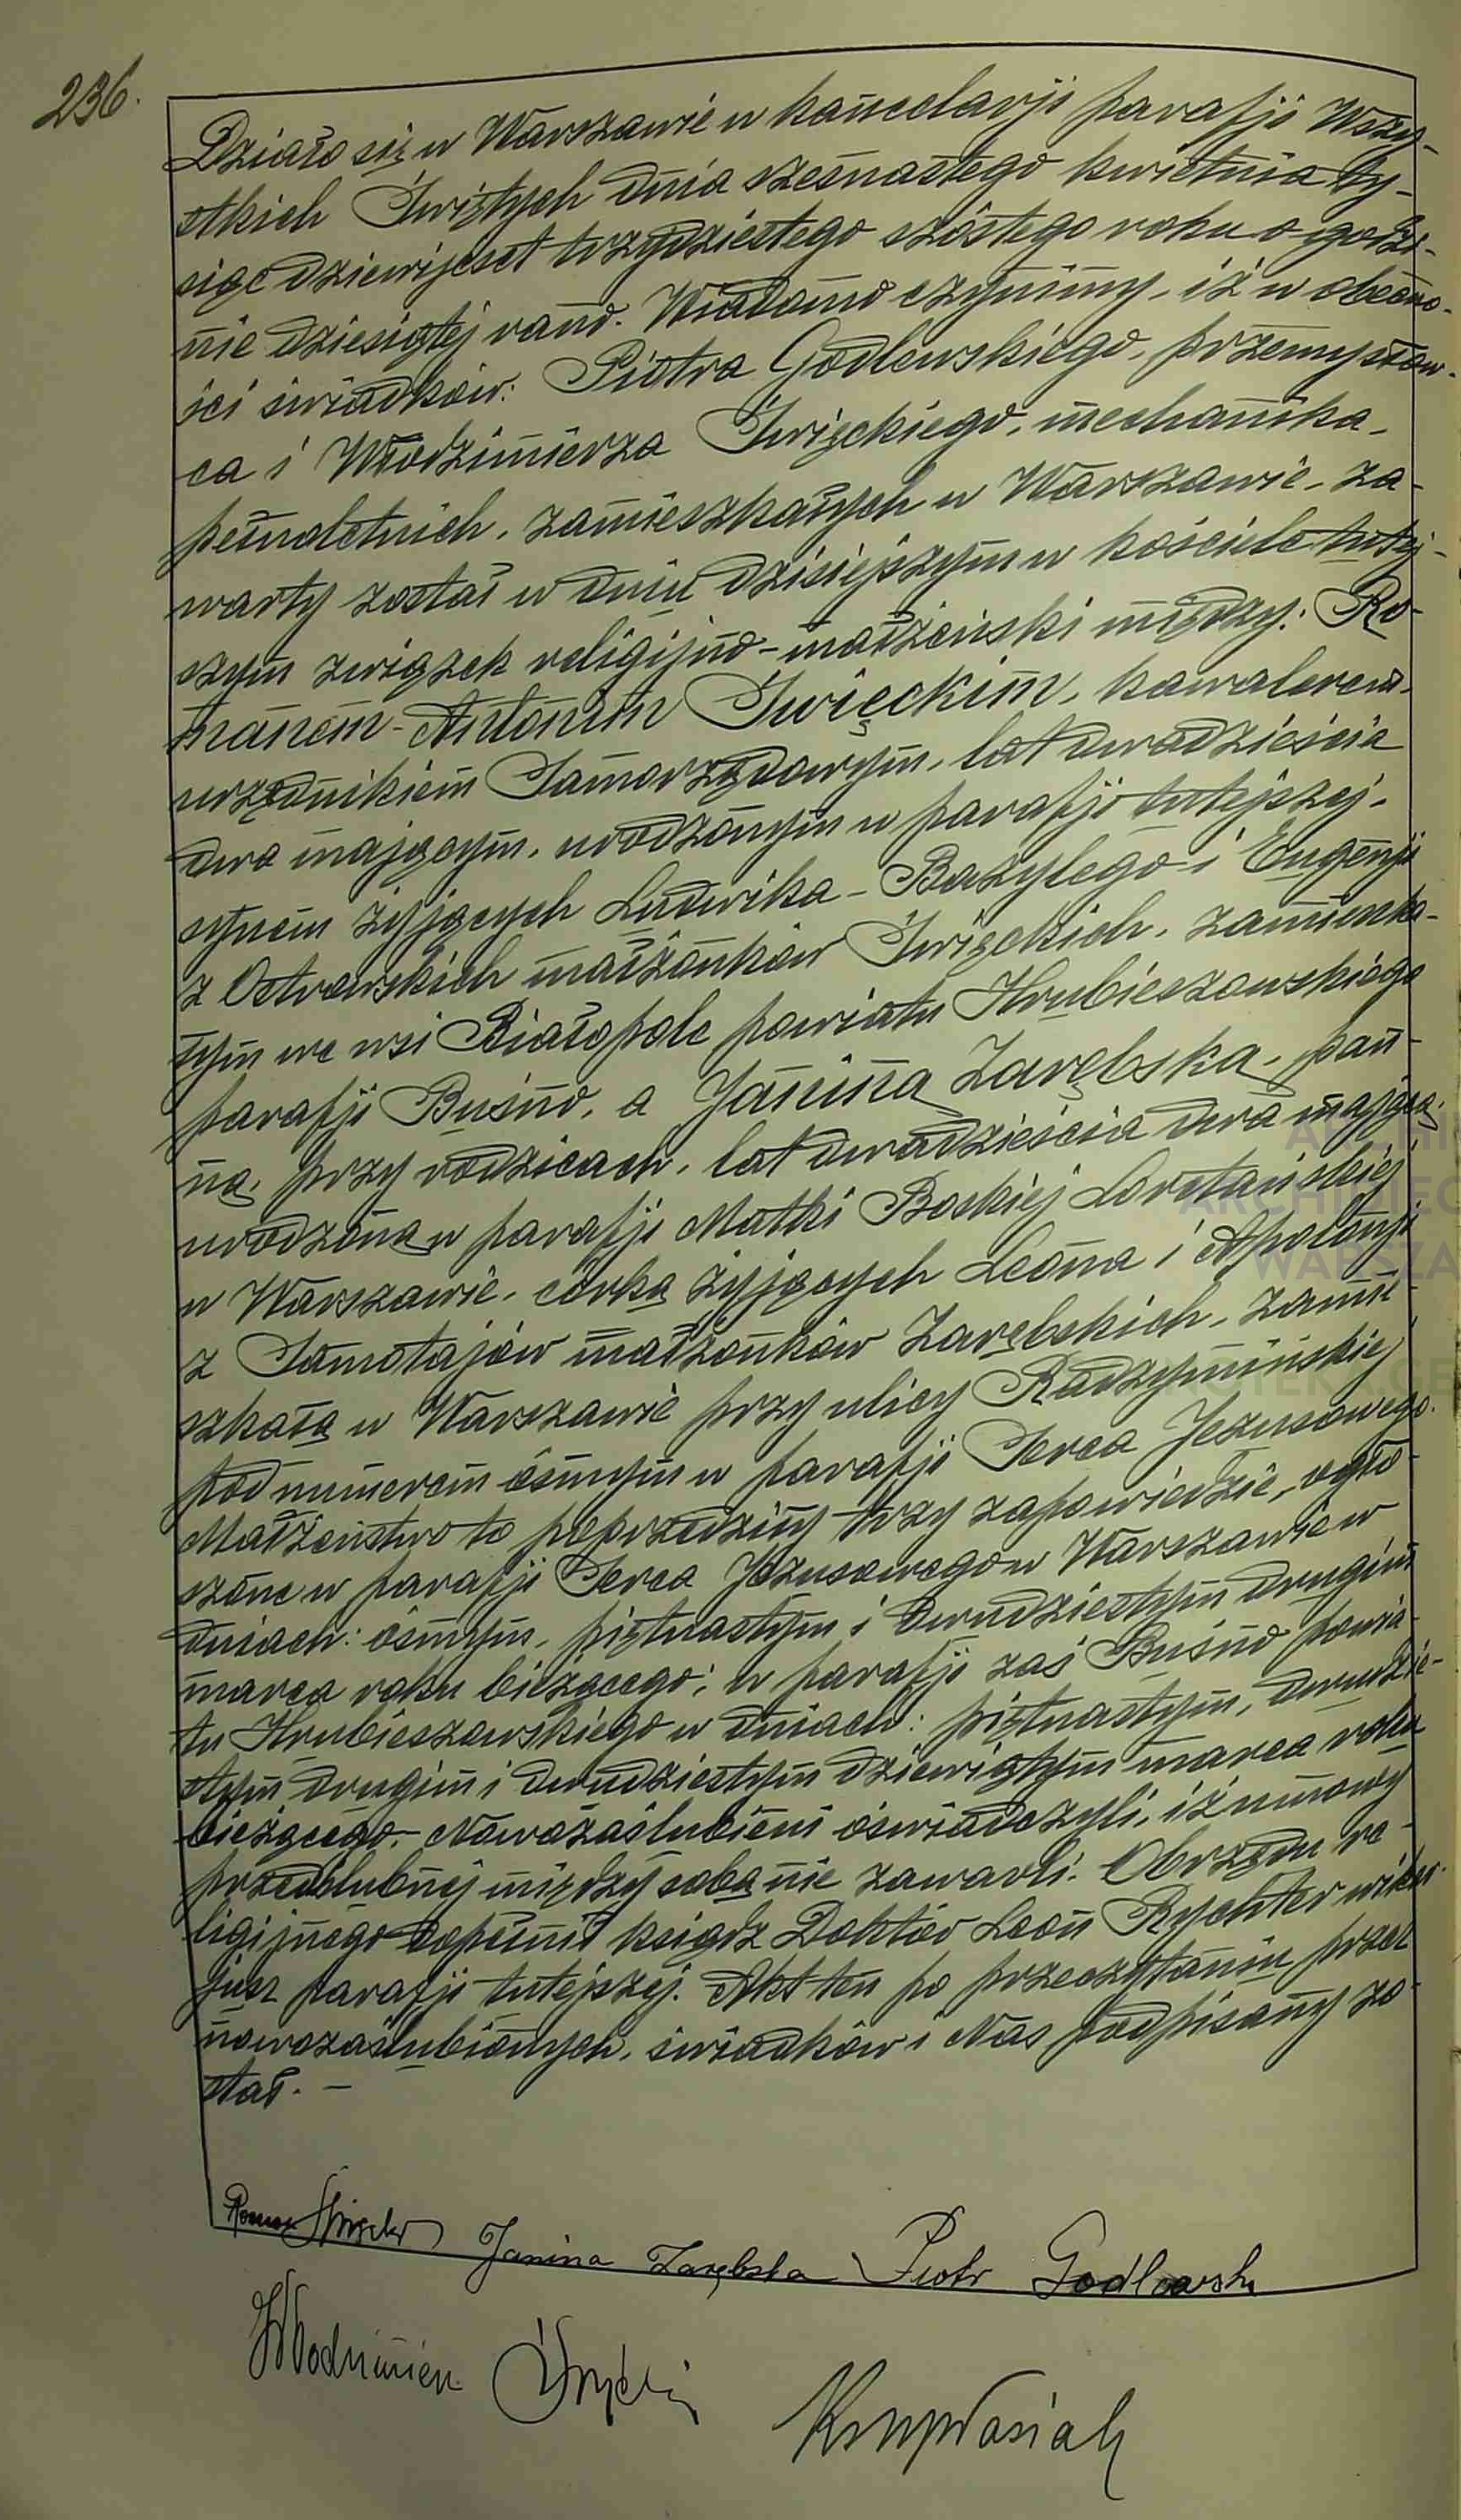 236.
Działo się w Warszawie w kancelarji parafji Wszy-
stkich Świętych dnia szesnastego kwietnia ty-
siąc dziewięćset trzydziestego szóstego roku o godzi-
nie dziesiątej rano. Wiadomo czynimy, iż w obecno-
ści świadków: Piotra Godlewskiego, przemysłow-
ca i Włodzimierza Święckiego, mechanika,
pełnoletnich, zamieszkałych w Warszawie, za-
warty został w dniu dzisiejszym w kościele tutej-
szym związek religijno-małżeński między: Ro-
manem-Antonim Święckim, kawalerem,
urzędnikiem Samorządowym, lat dwadzieścia
dwa mającym, urodzonym w parafji tutejszej,
synem żyjących Ludwika-Bazylego i Eugenji
z Ostrowskich małżonków Święckich, zamieszka-
łym we wsi Białopole powiatu Hrubieszowskiego
parafji Buśno, a Janiną Zarębską, pan-
ną, przy rodzicach, lat dwadzieścia dwa mającą,
urodzoną w parafji Matki Boskiej Loretańskiej
w Warszawie, córką żyjących Leona i Apolonji
z Samotajów małżonków Zarębskich, zamie-
szkałą w Warszawie przy ulicy Radzymińskiej
pod numerem ósmym w parafji Serca Jezusowego.
Małżeństwo to poprzedziły trzy zapowiedzie, ogło-
szone w parafji Serca Jezusowego w Warszawie w
dniach: ósmym, piętnastym i dwudziestym drugim
marca roku bieżącego; w parafji zaś Buśno powia-
tu Hrubieszowskiego w dniach: piętnastym, dwudzie-
stym drugim i dwudziestym dziewiątym marca roku
bieżącego. Nowozaślubieni oświadczyli, iż umowy
przedślubnej między sobą nie zawarli. Obrzędu re-
ligijnego dopełnił ksiądz Doktór Leon Rychter wikar-
jusz parafji tutejszej. Akt ten po przeczytaniu przez
nowozaślubionych, świadków i Nas podpisany zo-
stał. —
Roman Święcki Janina Zarębska Piotr Godlewski
Włodzimierz Święcki